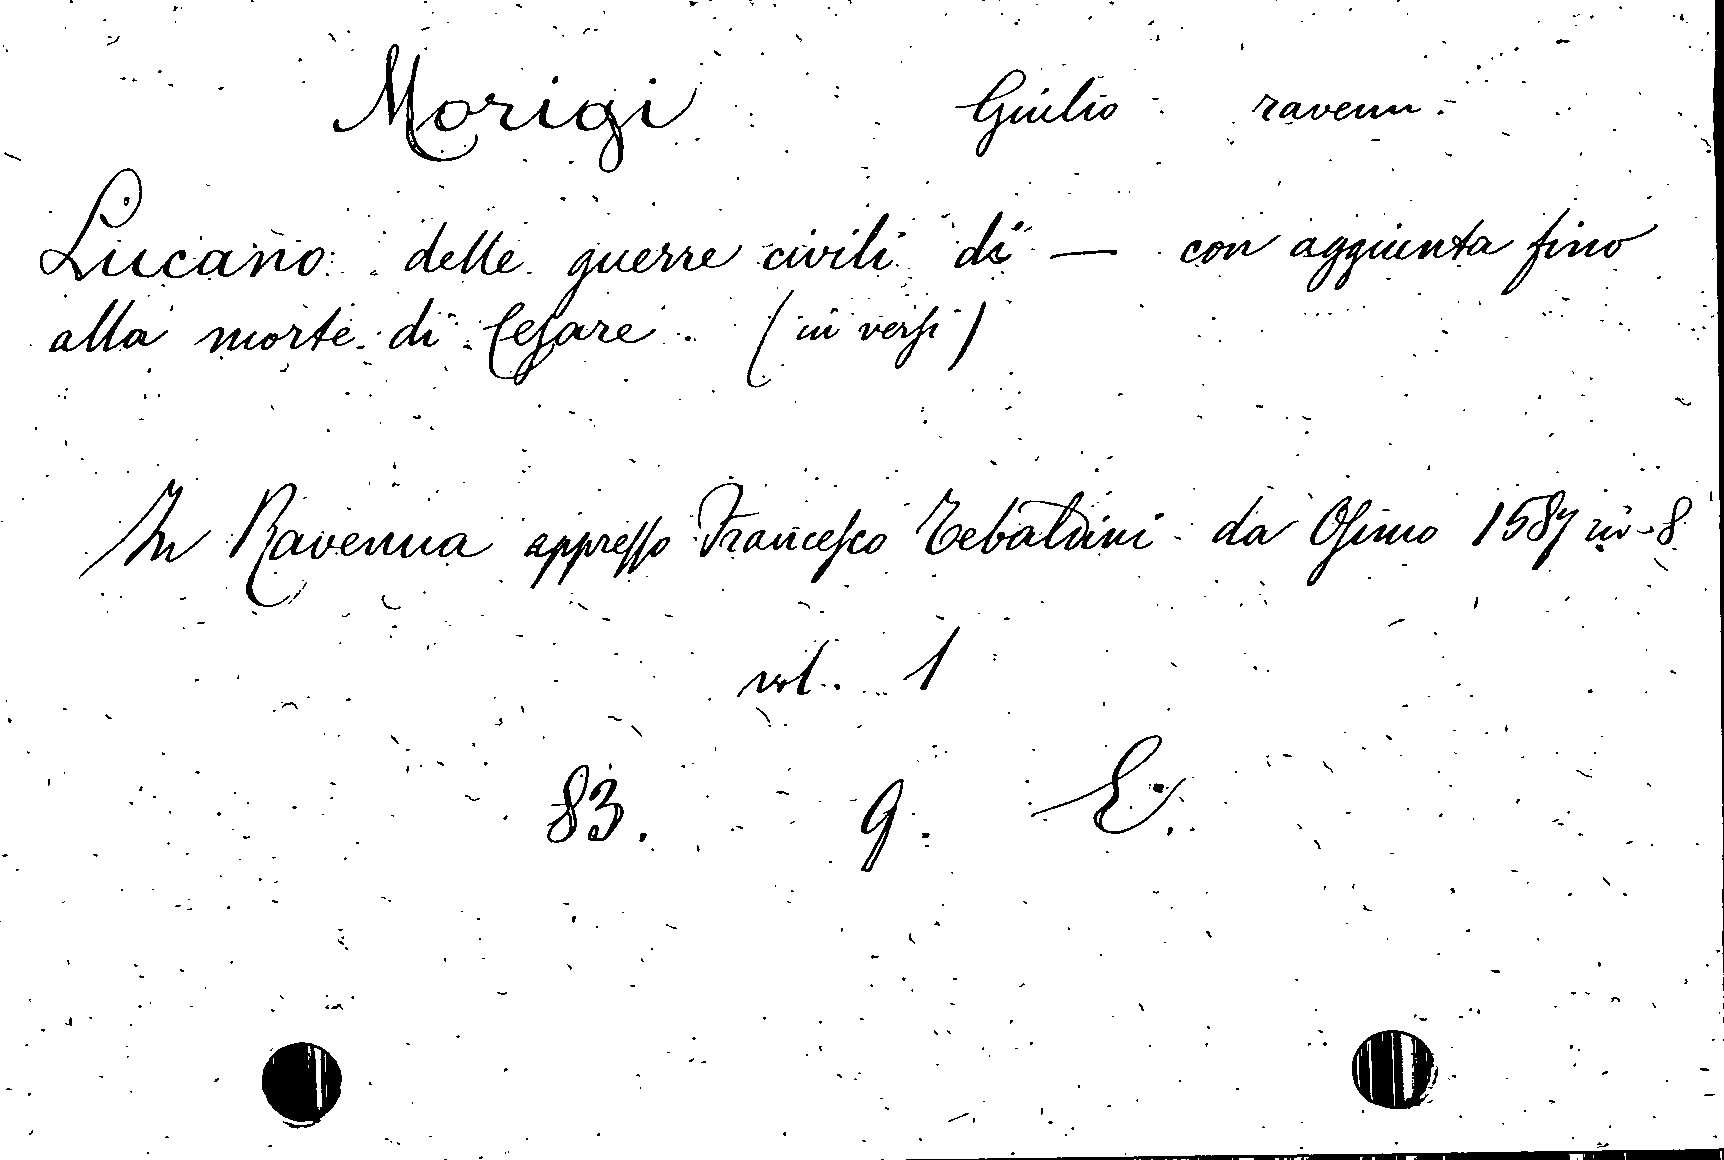 Morigi Giulio ravenn.
Lucano delle guerre civili di — con aggiunta fino
alla morte di Cesare. (in versi)
In Ravenna appresso Francesco Tebaldini da Osimo 1587 in-8
vol. 1
83. 9. E.